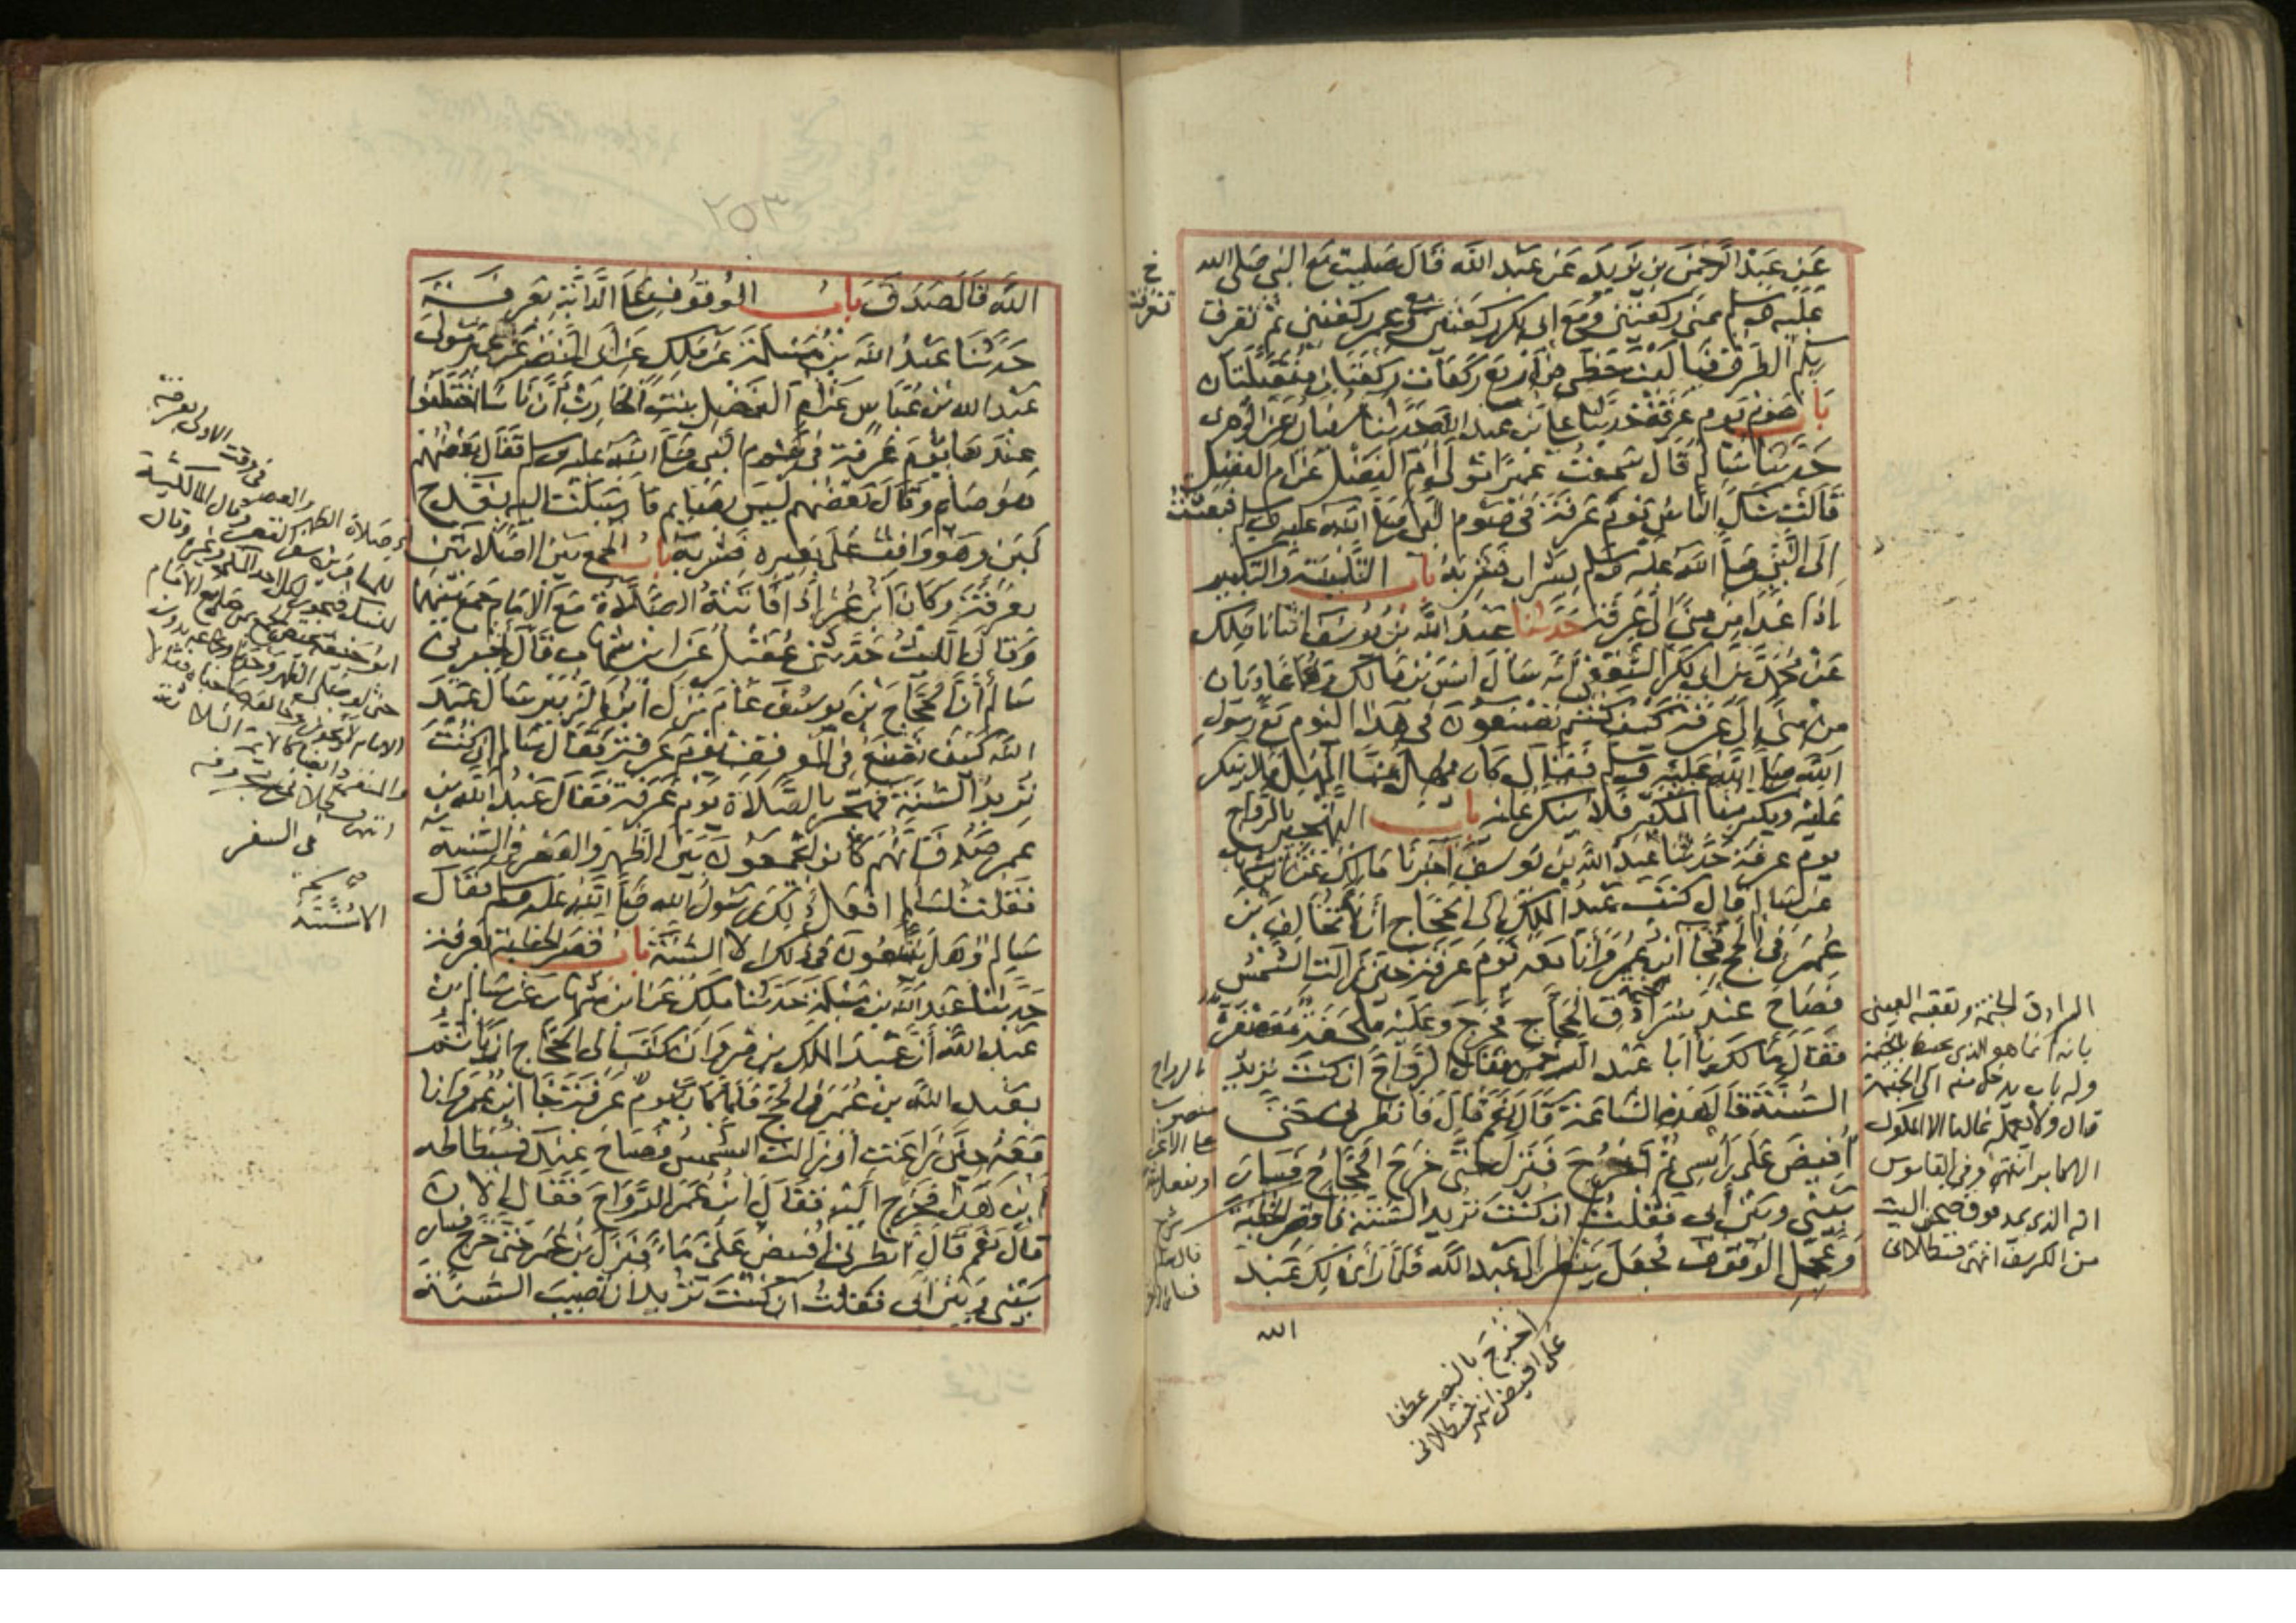 عَنْ عَبْدِ الرَّحْمٰنِ بن يَزِيدَ عَنْ عَبْدِ الله قَالَ صَلَّيْت مَعَ النبى صَلى الله
عَلَيْهِ وسلم بمنى رَكعَتَيْنِ وَمَعَ ابى بكر ركعَتَيْن ومع عمر ركعتين ثم تفرقت
بكم الطرق فيا لَيْتَ حَظِّى من أَرْبَع رَكَعَات رَكعَتَان مُتَقَبَّلَتَان
بَاب صَوْم يَوم عَرَفَة حَدَّثَنَا على بن عبد الله حَدَّثَنَا سفيان عَن الزهرى
حَدَّثَنَا سَالِم قَالَ سَمِعْتُ عُمَيْرًا مَوْلَى أُمِّ الفَضْل عَنْ ام الفضل
قَالَتْ شَكَّ الناسُ يَوْمَ عَرَفَة فى صَوْم النبى صَلَّى اللّه عليه وسلم فبَعَثْتُ
إِلَى النَّبِىِّ صَلَّى اللّه عليه وسلم بشراب فشربَهُ بَاب التَّلْبِيَة والتكبير
اذَا غَدَا مِنْ مِنًى الى عَرَفَة حَدَّثَنَا عَبْدُ اللَّه بْنُ يُوسُفَ انبانا مٰلِك
عَنْ مُحَمَّد بن ابى بَكْر الثَّقَفِى أنَّه سَأَلَ انَس بْن مَالك وَهُمَا غَادِيَان
مِنْ مِنًى إِلَى عَرَفَة كَيْفَ كنْتم تَصْنَعُونَ فى هَذَا اليَوم مَعَ رَسُولِ
اللّه صَلَّى اللَّه عَلَيْهِ وَسَلم فَقَالَ كَانَ يُهِلُّ مِنَّا المُهِلُّ فَلا يُنكر
عَلَيْهِ ويكبر مِنَّا المُكَبِّر فَلا يُنكرُ عَليْه بَاب التَّهْجِيرِ بالرَّوَاح
يوم عرفة حَدَّثَنَا عَبْدُ اللَّهِ بْن يُوسُف أخْبَرَنَا مَالِك عَن ابْن شهاب
عَنْ سَالم قال كتَبَ عَبْدُ المَلِك الى الحَجَّاج أنْ لا تخَالِف ابْن
عُمَرَ فى الحَج فَجَا ابْن عُمَر وَأنَا مَعَهُ يَوْمَ عَرَفَة حين زَالَتِ الشَّمْسُ
فَصَاحَ عِنْدَ سُرَادِق الحَجَّاج فخَرَجَ وَعَلَيْهِ مِلْحَفَة مُعَصْفَرَة
فقَالَ مَا لَكَ يَا أبَا عَبْد الرحمن فقَالَ الرَّوَاحَ ان كنْتَ تُرِيدُ
السُّنَّة قَالَ هَذِه السَّاعَة قَالَ نَعَمْ قَالَ فَانْظِرْنِى حَتَّى
أُفِيضَ عَلَى رَأْسِى ثُمَّ أَخْرُجَ فَنَزَلَ حَتَّى خَرَجَ الحَجَّاجُ فَسَارَ
بَيْنِى وَبَيْنَ أَبِى فَقُلْتُ ان كُنْتَ تُرِيدُ السُّنَّة فَاقصُر الخُطْبَة
وَعَجِّلِ الوُقُوفَ فَجَعَلَ يَنْظُر الى عَبْد الله فَلَمَّا رَأَى ذَلِكَ عَبْدُ
الله
خ
تفرقت
المرادق الخيمة وتعقبه العينى
بانه انما هو الذى يحيط بالخيمة
وله باب يدخل منه الى الخيمة
قال ولا يعمله غالبا الا الملوك
الاكابر انتهى وفى القاموس
انه الذى يمد فوق صحن البيت
من الكرسف انتهى قسطلانى
بالرواح
منصوب
على الاغرا
اخرج بالنصب عطفا
على افيض انتهى قسطلانى
٢٥٣
اللَّه قَالَ صَدَقَ بَابُ الوُقُوفِ عَلَى الدَّابَّةِ بِعَرَفَة
حَدَّثَنَا عَبْدُ اللَّه بْنُ مَسْلَمَة عَنْ مٰلِك عَنْ أَبِى النَّضْر عَنْ عُمَيْر مَوْلَى
عَبْد الله بْن عَبَّاس عَنْ أُمِّ الفَضْلِ بِنْتِ الحَارِث أَنَّ نَاسًا اخْتَلَفُوا
عِنْدَهَا يَوْمَ عَرَفَة فى صَوْم النبى صَلَّى اللَّه عليه وسلم فقَالَ بَعْضُهُمْ
هُوَ صَائِم وَقَالَ بَعْضُهُم لَيْسَ بِصَائِم فَأَرْسَلْتُ اليه بِقَدَحِ
لَبَن وَهُوَ وَاقِفٌ عَلَى بَعِيرِه فَشَرِبَهُ بَابُ الجَمْعِ بَيْنَ الصَّلَاتَيْنِ
بِعَرَفَة وَكَانَ ابْنُ عُمَرَ إِذَا فَاتَتْهُ الصَّلَاة مَعَ الإِمَام جَمَعَ بَيْنَهُمَا
وَقَالَ اللَّيْثُ حَدَّثَنِى عُقَيْلٌ عَن ابن شهاب قَالَ أَخْبَرَنِى
سَالم أَنَّ الحَجَّاج بْنَ يُوسُفَ عَامَ نَزَلَ بابْنِ الزُّبَيْر سَأَلَ عَبْدَ
اللَّه كَيْفَ تَصْنَعُ فِى المَوقف يَوْمَ عَرَفَة فَقَالَ سَالم إِنْ كُنْتَ
تُرِيدُ السُّنَّة فَهَجِّر بالصَّلَاة يَوْمَ عَرَفَة فَقَالَ عَبْدُ اللَّه بن
عمر صَدَقَ إِنَّهُمْ كَانُوا يَجْمَعُونَ بَيْنَ الظُّهْرِ وَالعَصْر فى السُّنَّة
فَقُلْتُ لِسَالِم افعَلَ ذلِكَ رَسُولُ الله صَلَّى اللَّه عَلَيْه وسلم فقَالَ
سَالِم وَهَلْ تَتَّبِعُونَ فى ذلك الا السُّنَّة بَابُ قَصْر الخُطْبَة بعَرَفَة
حَدَّثَنَا عَبْدُ اللَّه بن مَسْلَمَة حَدَّثَنَا مٰلِك عَن ابن شهَاب عَنْ سَالِم بْن
عَبْدِ اللَّه أَنَّ عَبْدَ المَلِك بن مَرْوَانَ كَتَبَ الى الحَجَّاج ان يَأْتَمَّ
بعَبْد اللَّه بن عُمَر فى الحَجّ فَلَمَّا كَانَ يَوْمُ عَرَفَة جَا ابْنُ عُمَر وَأَنَا
مَعَهُ حِينَ زَاغَتْ أَوْ زَالَت الشَّمْسُ فَصَاحَ عِنْدَ فُسْطَاطِه
أَيْنَ هَذَا فَخَرَجَ اليْه فَقَالَ ابْنُ عُمَر الرَّوَاحَ فَقَالَ الآنَ
قَالَ نَعَم قَالَ انظرنى أُفِيضُ عَلَىَّ مَاءً فَنَزَلَ بْن عُمَر حَتَّى خَرَجَ فسار
بَيْنِى وَبَيْنَ أَبِى فَقُلْتُ ان كُنْتَ تُرِيدُ ان تُصِيبَ السُّنَّة
فى وقت الاولى بعرفة
صلاة الظهر والعصر
وقال المالكية
فى السفر
الاسُنَّتَهُ